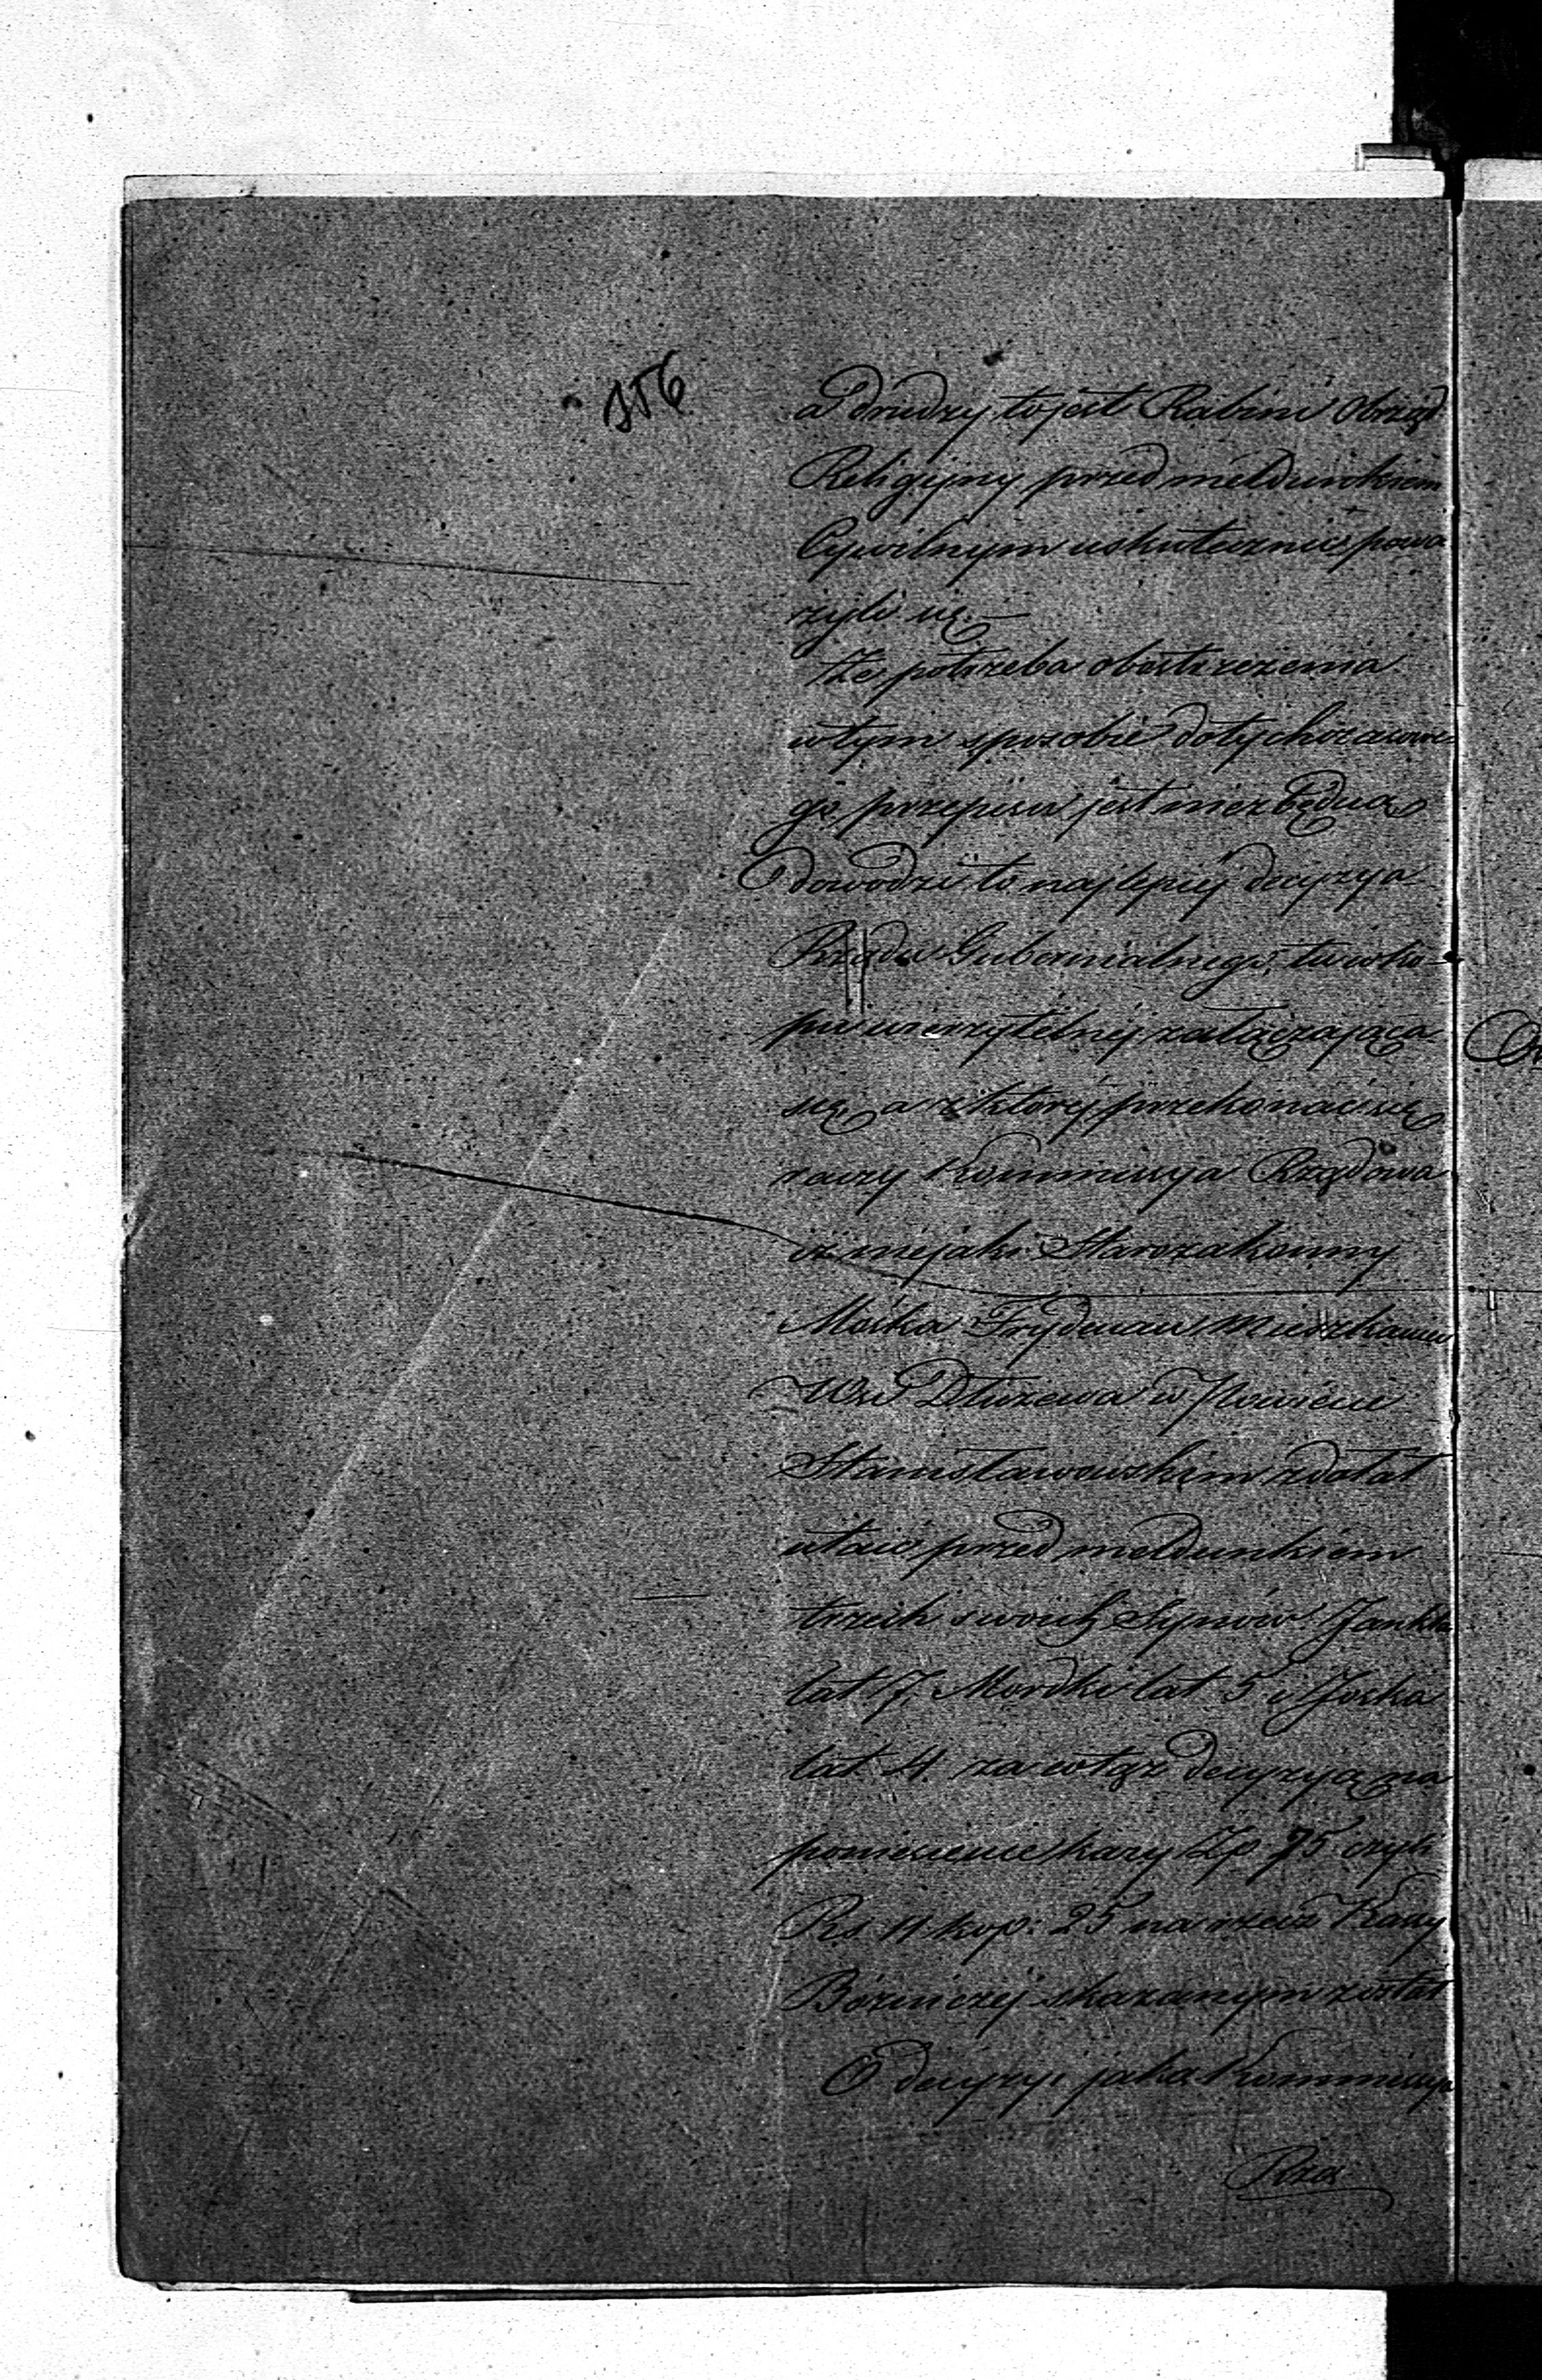 356
a drudzy to jest Rabini obrząd
Religijny przed meldunkiem
Cywilnym uskutecznić powa
żyli się.—
Że potrzeba obostrzezenia
w tym sposobie dotychczasowe-
go przepisu jest niezbędna
dowodzi to najlepiej decyzya
Rządu Gubernialnego, tu w ko-
pii wierzytelnej załączająca
się, a z której przekonać się
raczy Kommissya Rządowa
iż niejaki Starozakonny
Mośka Frydman Mieszkaniec
Wsi Dłużewa w Powiecie
Stanisławowskim zdołał
utaić przed meldunkiem
trzech swoich Synów Jankla
lat 7, Mordki lat 5 i Joska
lat 4. za co też decyzyą na
poniesienie kary Zp 75 czyli
Rs. 11 kop: 25 na rzecz Kassy
Bóżniczej skazanym został
O decyzyi jaka Kommissya
Rzą